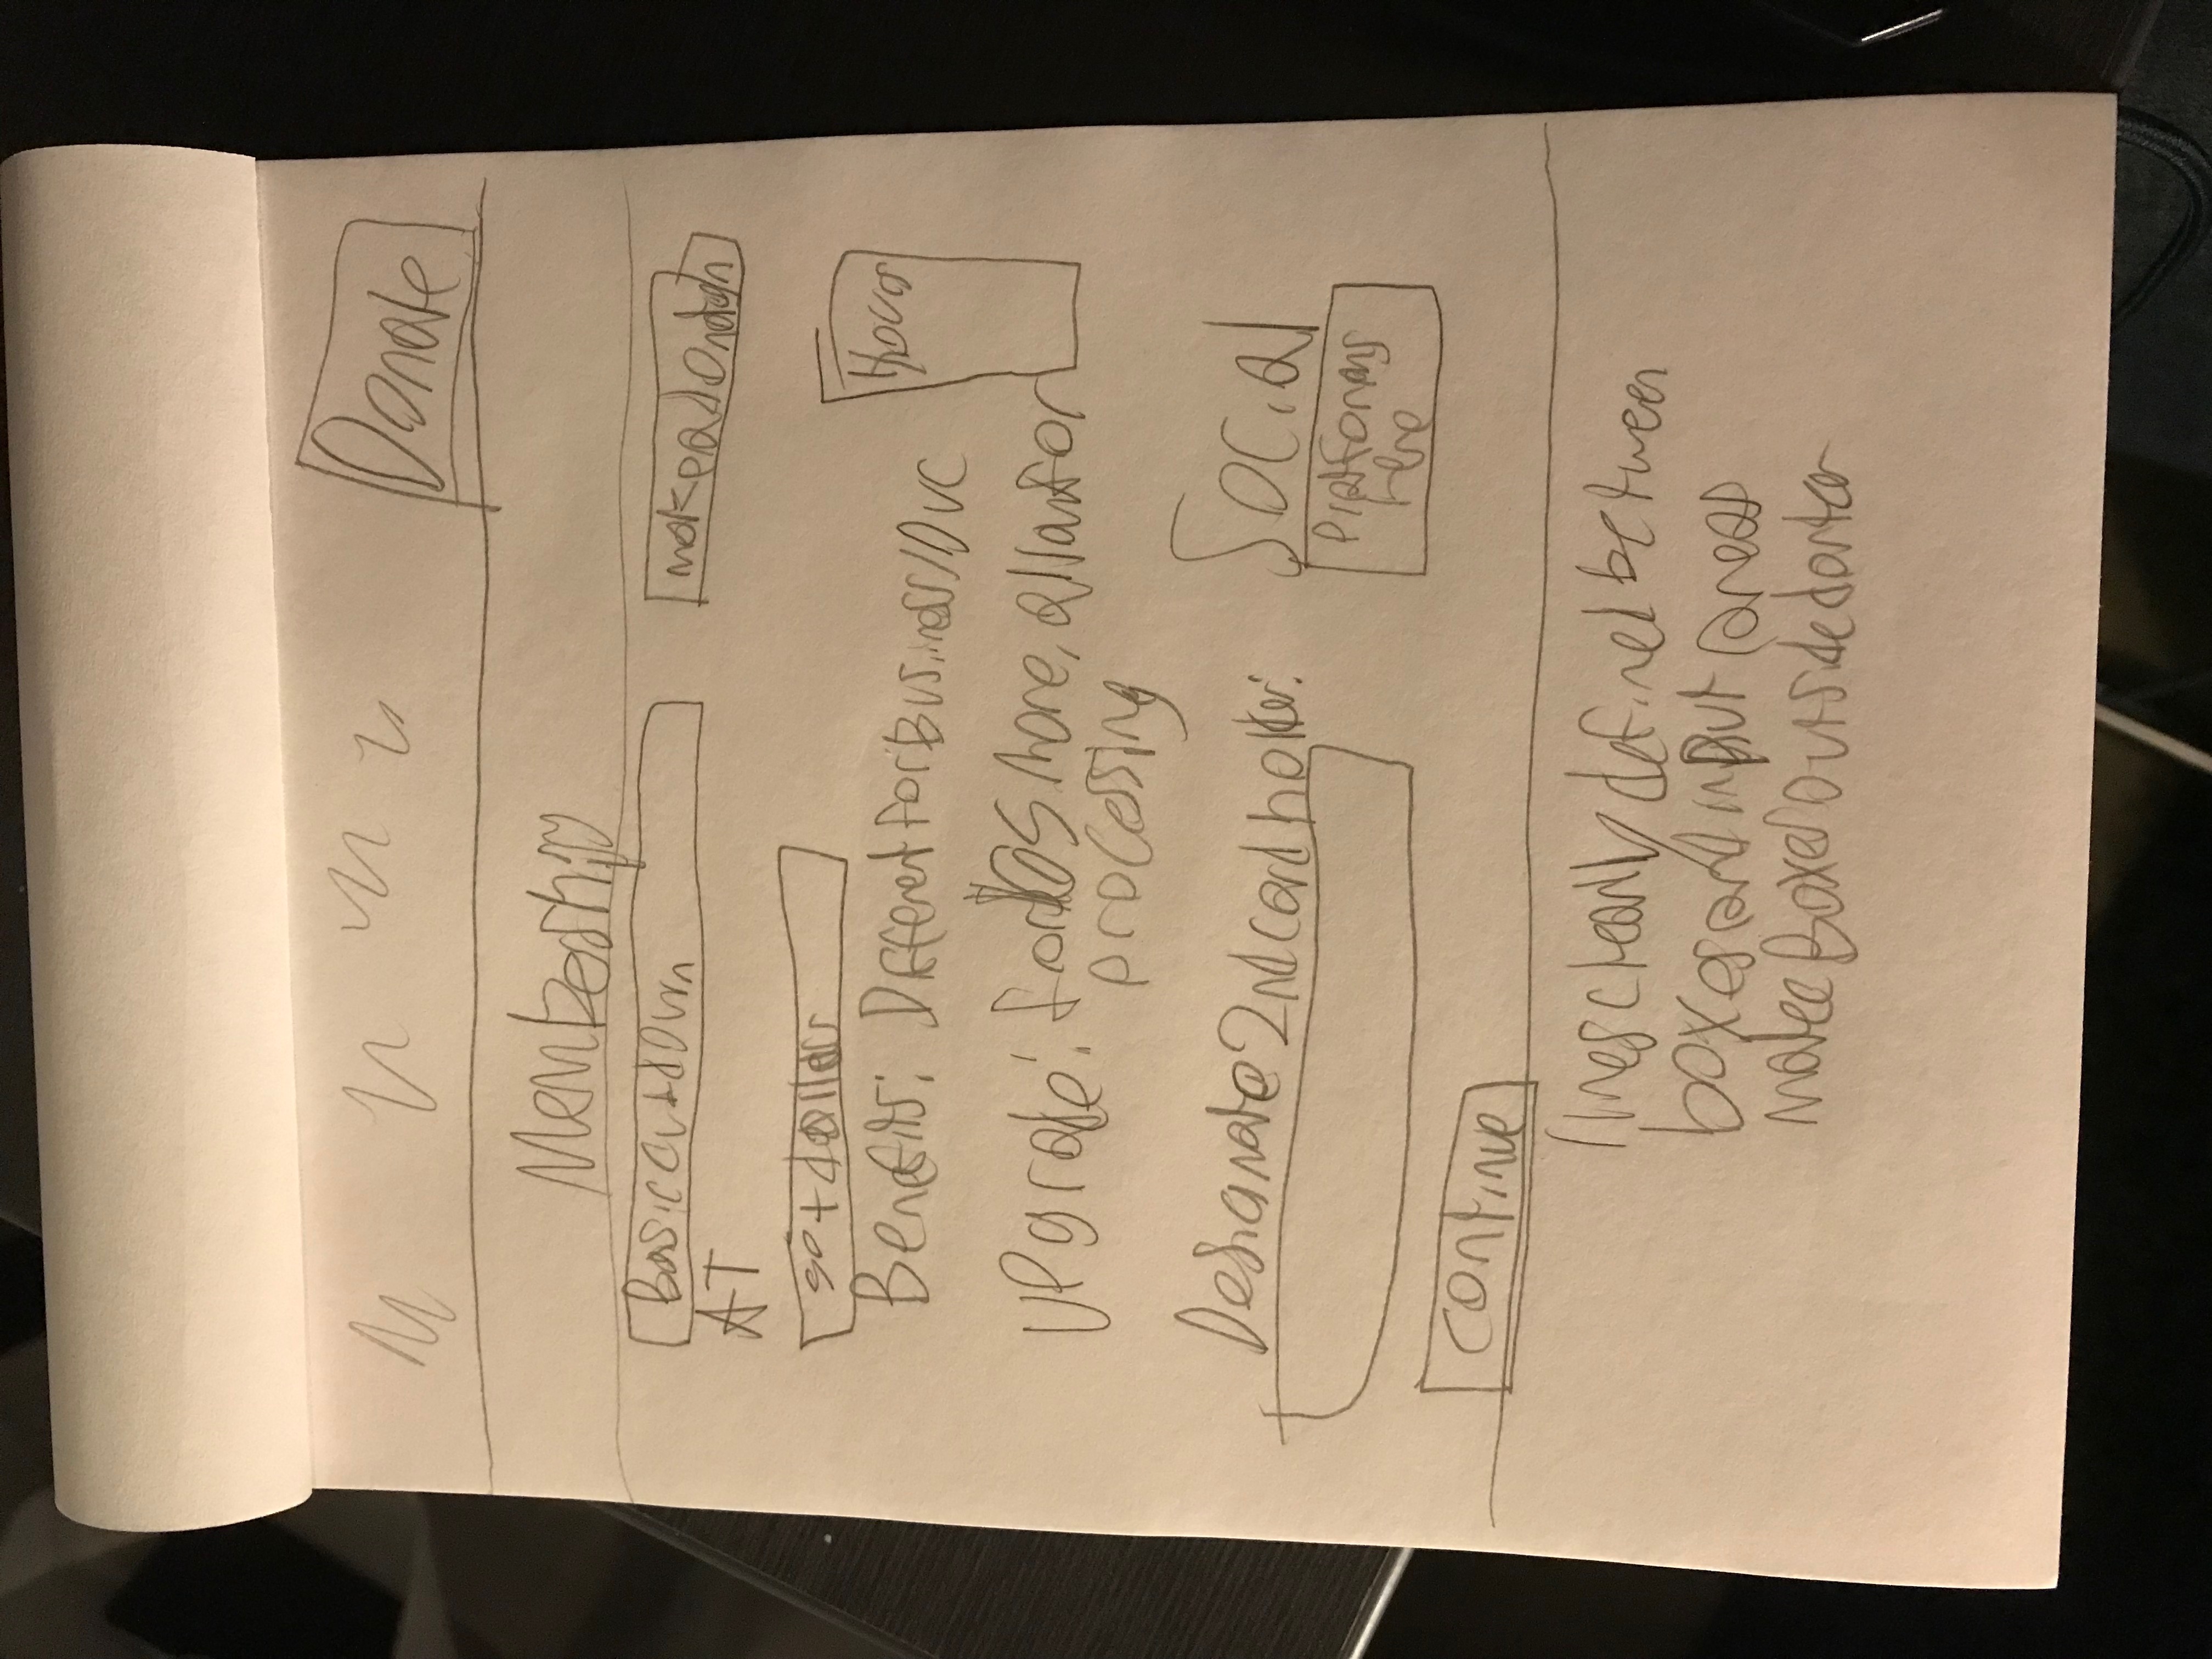 Donate
Membership
Basic
make a donation
AT
50+ dollars
Benefits: Different for Business/DVC
Hours
Upgrade: for $ more, allow for
processing
Designate 2nd card holder:
Social
Platforms
here
continue
lines clearly defined between
boxes and input areas
make Boxes outside darker